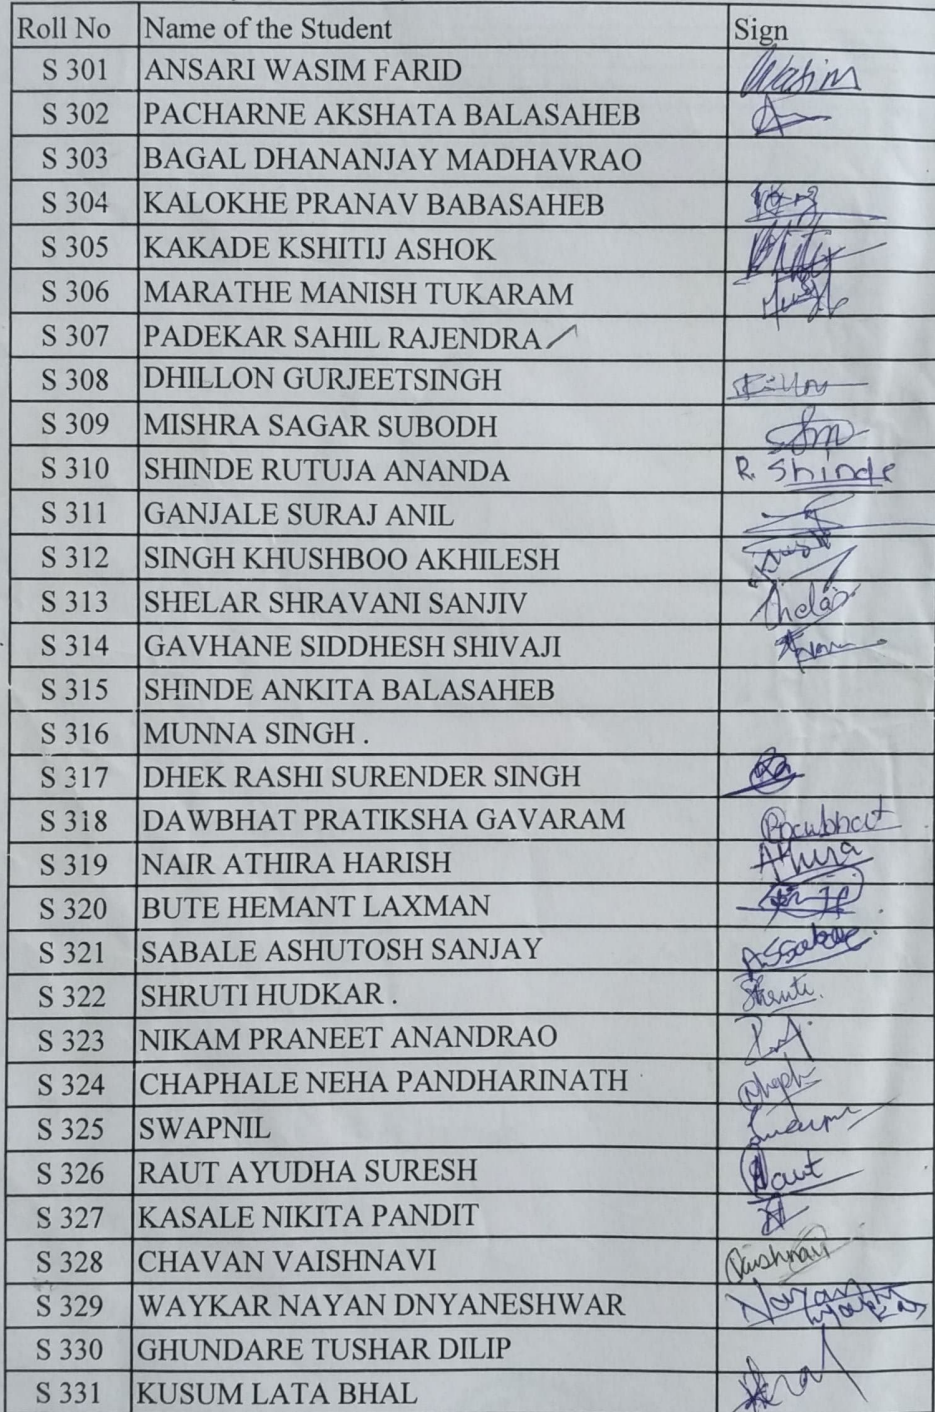 Roll No Name of the Student Sign
S 301 ANSARI WASIM FARID Wasim
S 302 PACHARNE AKSHATA BALASAHEB
S 303 BAGAL DHANANJAY MADHAVRAO
S 304 KALOKHE PRANAV BABASAHEB
S 305 KAKADE KSHITIJ ASHOK
S 306 MARATHE MANISH TUKARAM
S 307 PADEKAR SAHIL RAJENDRA
S 308 DHILLON GURJEETSINGH
S 309 MISHRA SAGAR SUBODH
S 310 SHINDE RUTUJA ANANDA R. Shinde
S 311 GANJALE SURAJ ANIL
S 312 SINGH KHUSHBOO AKHILESH
S 313 SHELAR SHRAVANI SANJIV
S 314 GAVHANE SIDDHESH SHIVAJI
S 315 SHINDE ANKITA BALASAHEB
S 316 MUNNA SINGH .
S 317 DHEK RASHI SURENDER SINGH
S 318 DAWBHAT PRATIKSHA GAVARAM
S 319 NAIR ATHIRA HARISH Athira
S 320 BUTE HEMANT LAXMAN
S 321 SABALE ASHUTOSH SANJAY
S 322 SHRUTI HUDKAR . Shruti
S 323 NIKAM PRANEET ANANDRAO
S 324 CHAPHALE NEHA PANDHARINATH
S 325 SWAPNIL
S 326 RAUT AYUDHA SURESH
S 327 KASALE NIKITA PANDIT
S 328 CHAVAN VAISHNAVI Vaishnavi
S 329 WAYKAR NAYAN DNYANESHWAR Nayan
S 330 GHUNDARE TUSHAR DILIP
S 331 KUSUM LATA BHAL